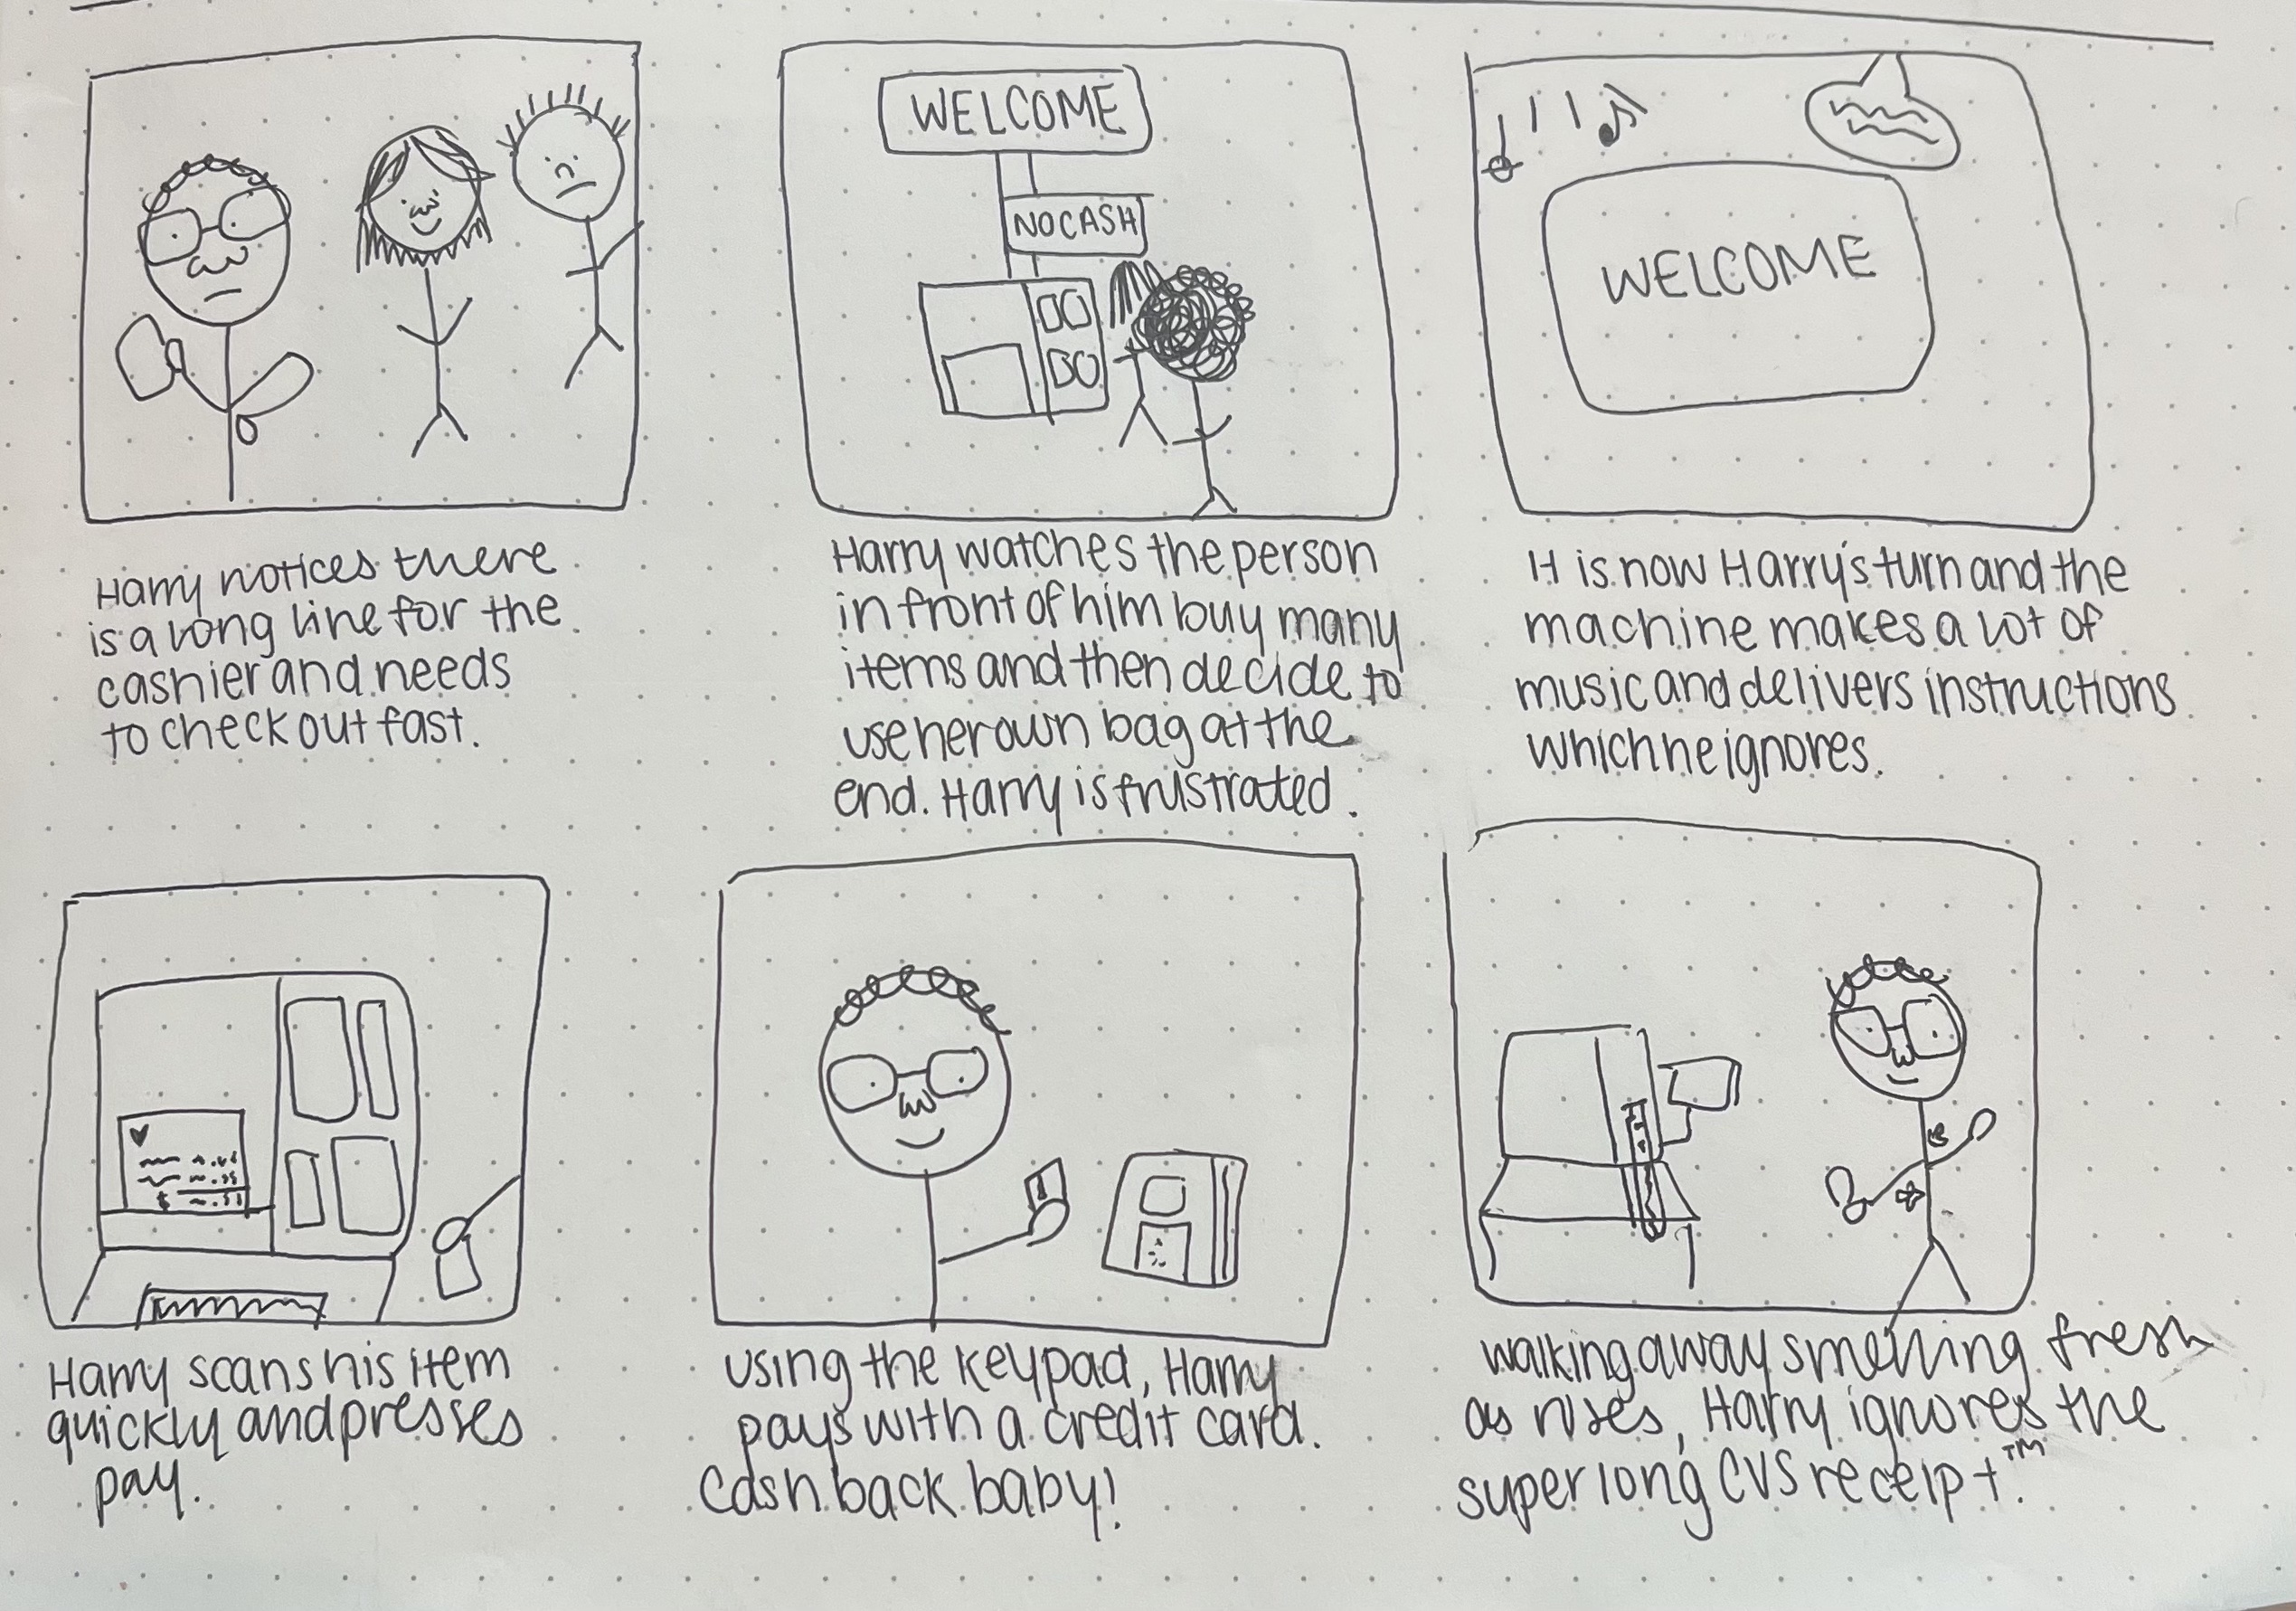 WELCOME
NO CASH
WELCOME
Harry notices there
is a long line for the
cashier and needs
to check out fast.
Harry watches the person
in front of him buy many
items and then decide to
use her own bag at the
end. Harry is frustrated.
It is now Harry's turn and the
machine makes a lot of
music and delivers instructions
which he ignores.
$
Harry scans his item
quickly and presses
pay.
using the keypad, Harry
pays with a credit card.
Cash back baby!
walking away smelling fresh
as roses, Harry ignores the
super long CVS receipt.™